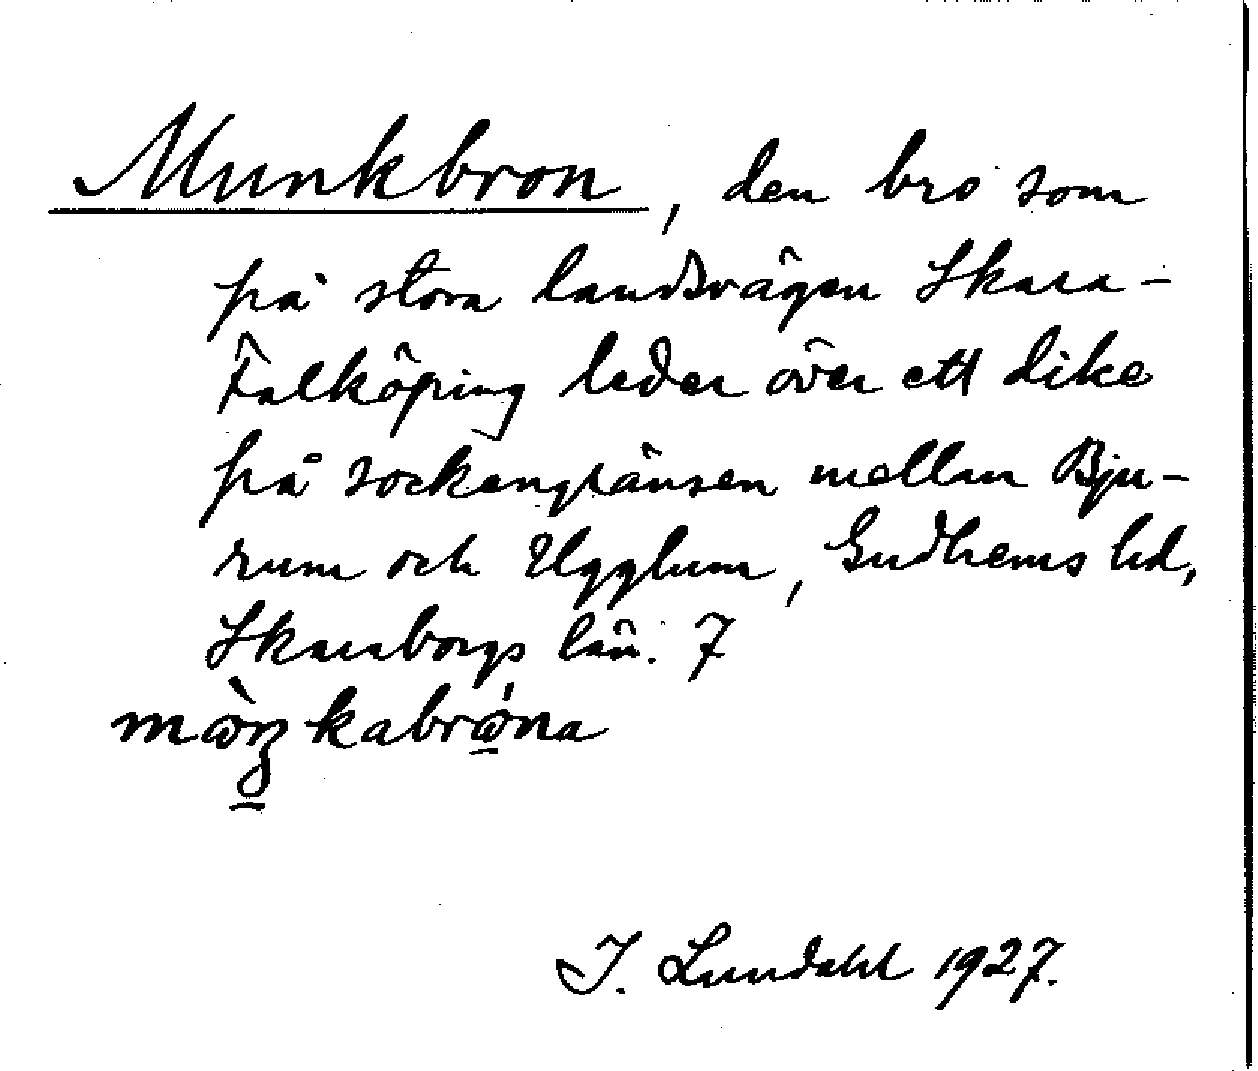 Munkbron, den bro som
på stora landsvägen Skara-
Falköping leder över ett dike
på sockengränsen mellan Bju-
rum och Ugglum, Gudhems hd,
Skaraborgs län. 7
I. Lundahl 1927.